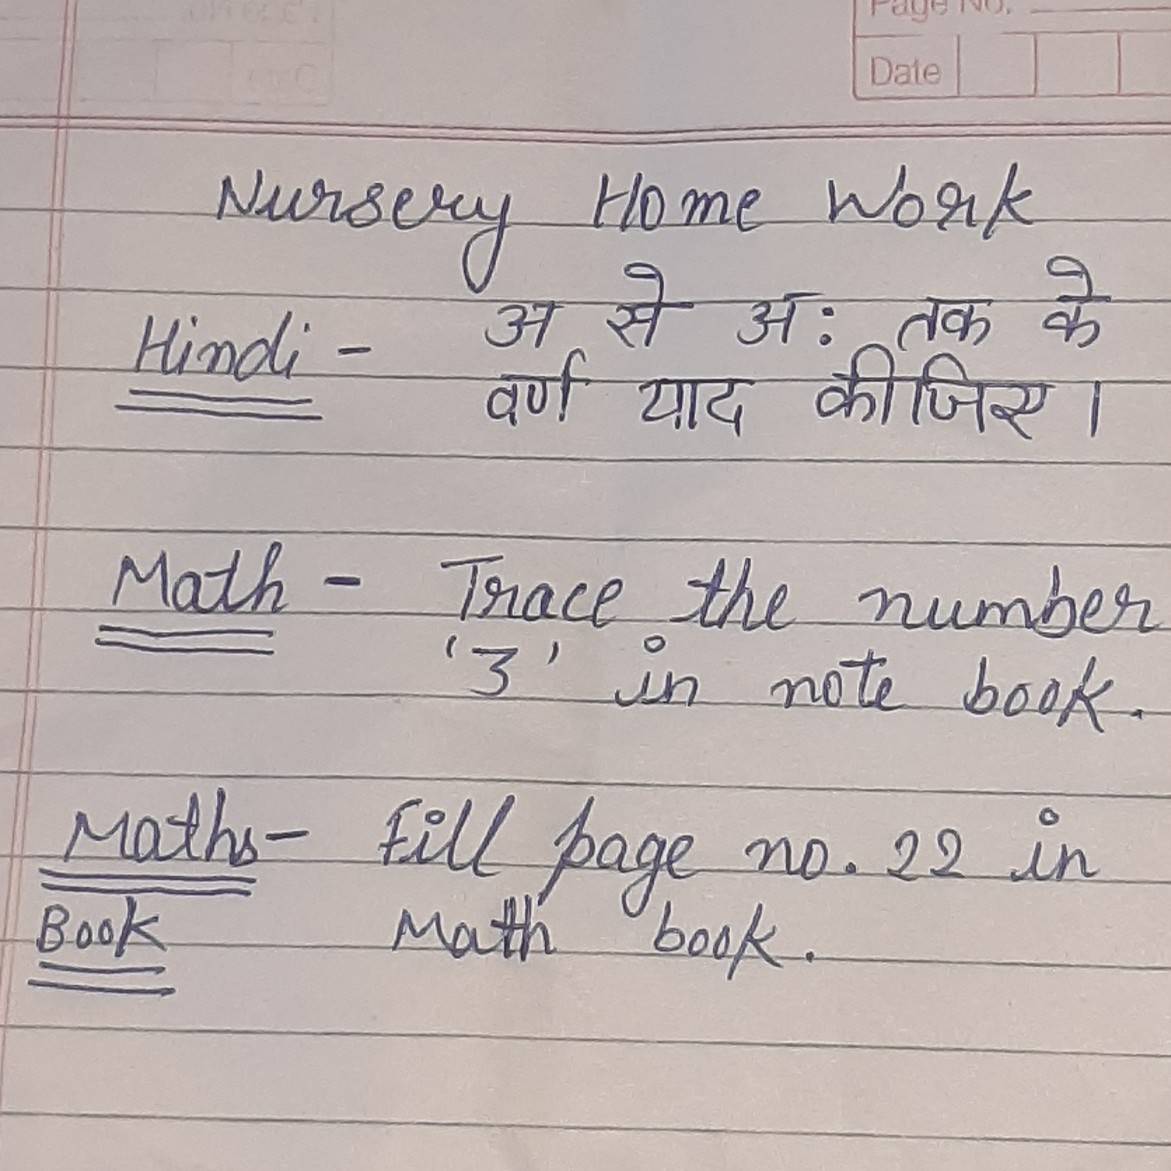 Page No.
Date
Nursery Home Work
Hindi - अ से अ: तक के
वर्ण याद कीजिए।
Math - Trace the number
'3' in note book.
Maths - Fill page no. 22 in
Book Math book.